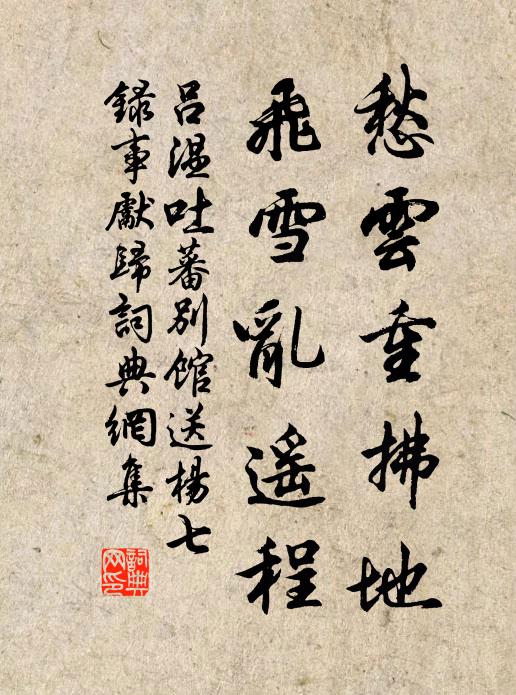 愁雲重拂地
飛雪亂遥程
吕溫吐蕃別館送楊七
錄事獻歸詞典網集
詞典
网印